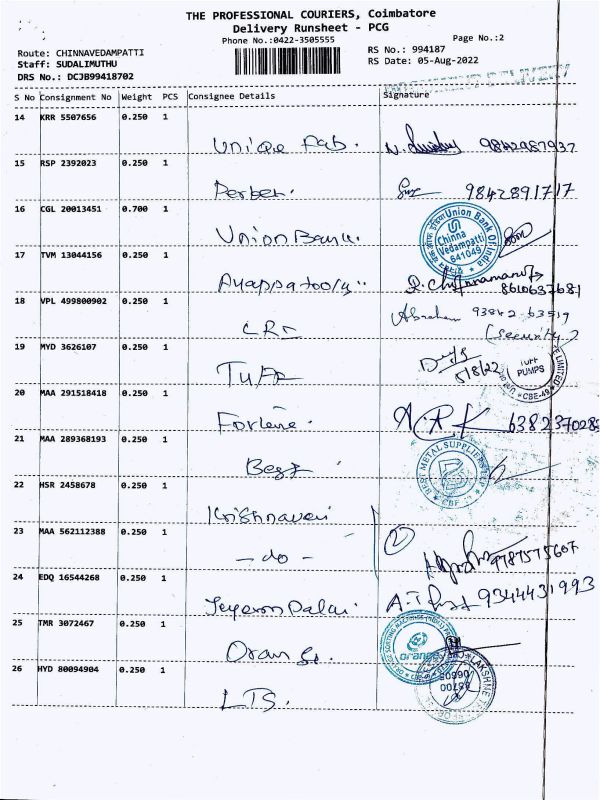 THE PROFESSIONAL COURIERS, Coimbatore
Delivery Runsheet - PCG
Phone No.:0422-3505555
Page No.:2
Route: CHINNAVEDAMPATTI
RS No.: 994187
Staff: SUDALIMUTHU
RS Date: 05-Aug-2022
DRS No.: DCJB99418702
S No Consignment No Weight PCS Consignee Details Signature
14 KRR 5507656 0.250 1
Unique Fab. 9842987937
15 RSP 2392023 0.250 1
Perben. 9842891717
16 CGL 20013451 0.700 1
Union Bank.
Union Bank Of India
Chinna
Vedampatti
641049
17 TVM 13044156 0.250 1
8610637681
18 VPL 499800902 0.250 1
CRI Abraham 93842 63519
(security)
19 MYD 3626107 0.250 1
Tuff 5/8/22
TUFF
PUMPS
CBE-49
20 MAA 291518418 0.250 1
A.R.K 638237028
21 MAA 289368193 0.250 1
Best
BEST METAL SUPPLIERS
22 HSR 2458678 0.250 1
Krishnaveni
23 MAA 562112388 0.250 1
- do - 2 9787575607
24 EDQ 16544268 0.250 1
9344431993
25 TMR 3072467 0.250 1
Orange.
orange
26 HYD 80094904 0.250 1
LTS.
LAKSHME